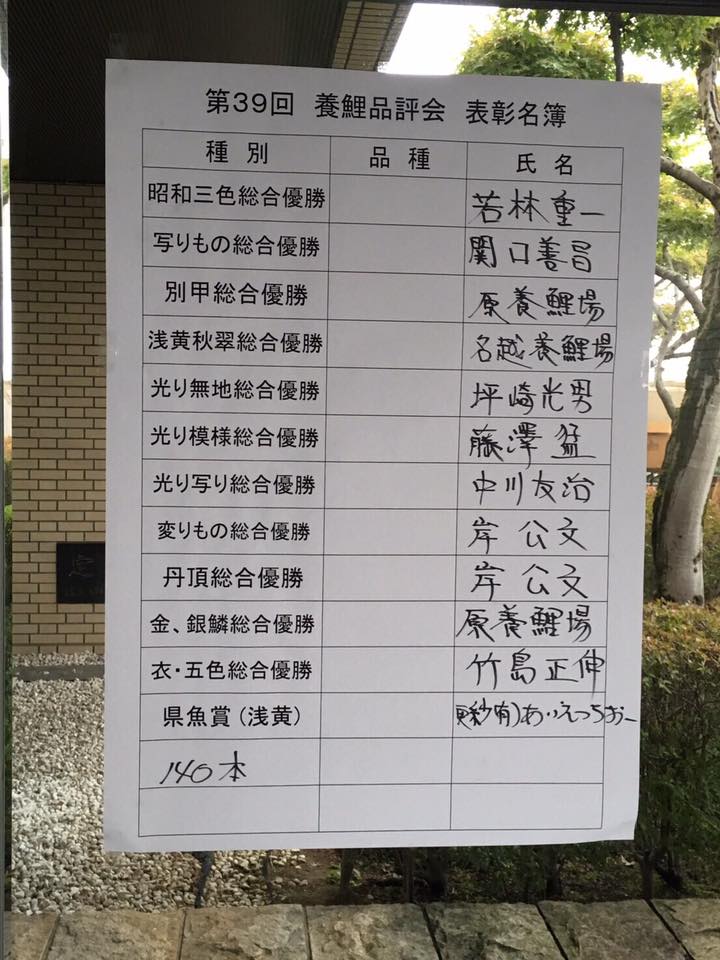 第39回 養鯉品評会 表彰名簿
種別 品種 氏名
昭和三色総合優勝 若林重一
写りもの総合優勝 関口善昌
別甲総合優勝 原養鯉場
浅黄秋翠総合優勝 名越養鯉場
光り無地総合優勝 坪崎光男
光り模様総合優勝 藤澤猛
光り写り総合優勝 中川友治
変りもの総合優勝 岸公文
丹頂総合優勝 岸公文
金、銀鱗総合優勝 原養鯉場
衣・五色総合優勝 竹島正伸
県魚賞(浅黄) 有)あいえっちおー
140本